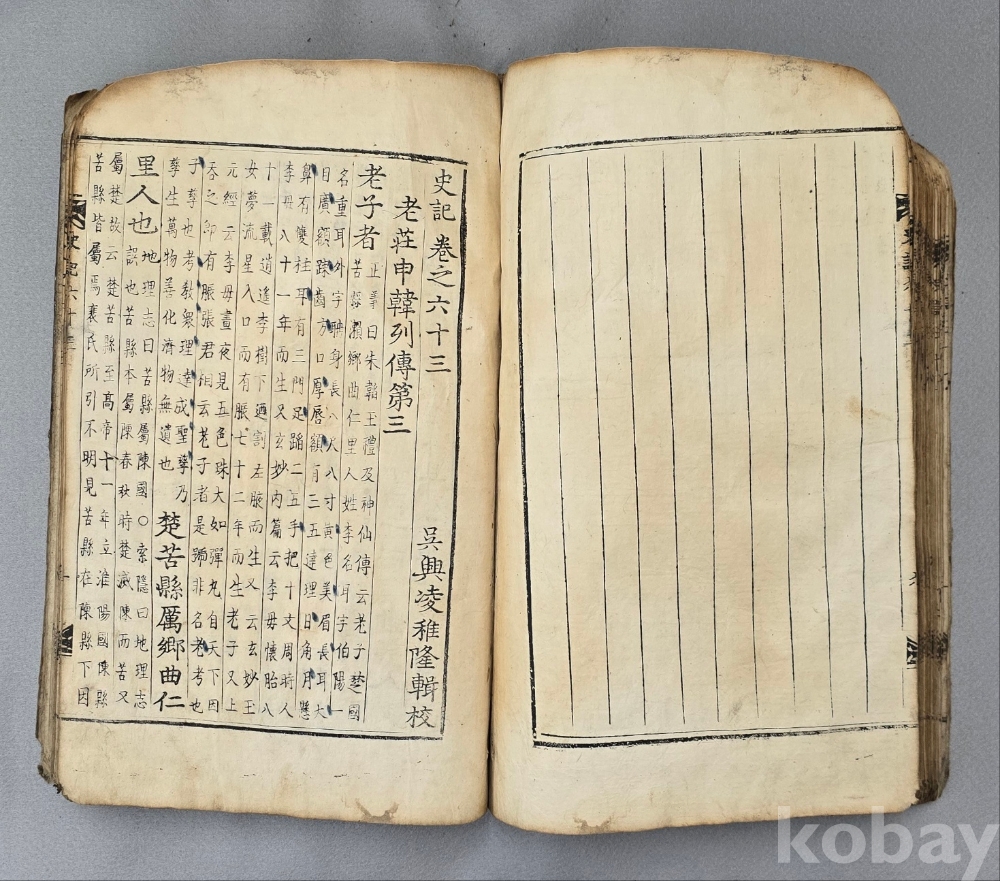 史記 卷之六十三
吳興凌稚隆輯校
老莊申韓列傳第三
老子者
正義曰朱韜玉禮及神仙傳云老子楚國
苦縣瀨鄉曲仁里人姓李名耳字伯陽一
名重耳外字聃身長八尺八寸黃色美眉長耳大
目廣額疎齒方口厚唇額有三五達理日角月懸
鼻有雙柱耳有三門足蹈二五手把十文周時人
李母八十一年而生又玄妙內篇云李母懷胎八
十一載逍遙李樹下迺割左腋而生又云玄妙玉
女夢流星入口而有脤七十二年而生老子又上
元經云李母晝夜見五色珠大如彈丸自天下因
吞之即有脤張君相云老子者是號非名老考也
子孳也考敎衆理達成聖孳乃
孳生萬物善化濟物無遺也
楚苦縣厲鄉曲仁
里人也
地理志曰苦縣屬陳國○索隱曰地理志
訛也苦縣本屬陳春秋時楚滅陳而苦又
屬楚故云楚苦縣至高帝十一年立淮陽國陳縣
苦縣皆屬焉裴氏所引不明見苦縣在陳縣下因
kobay